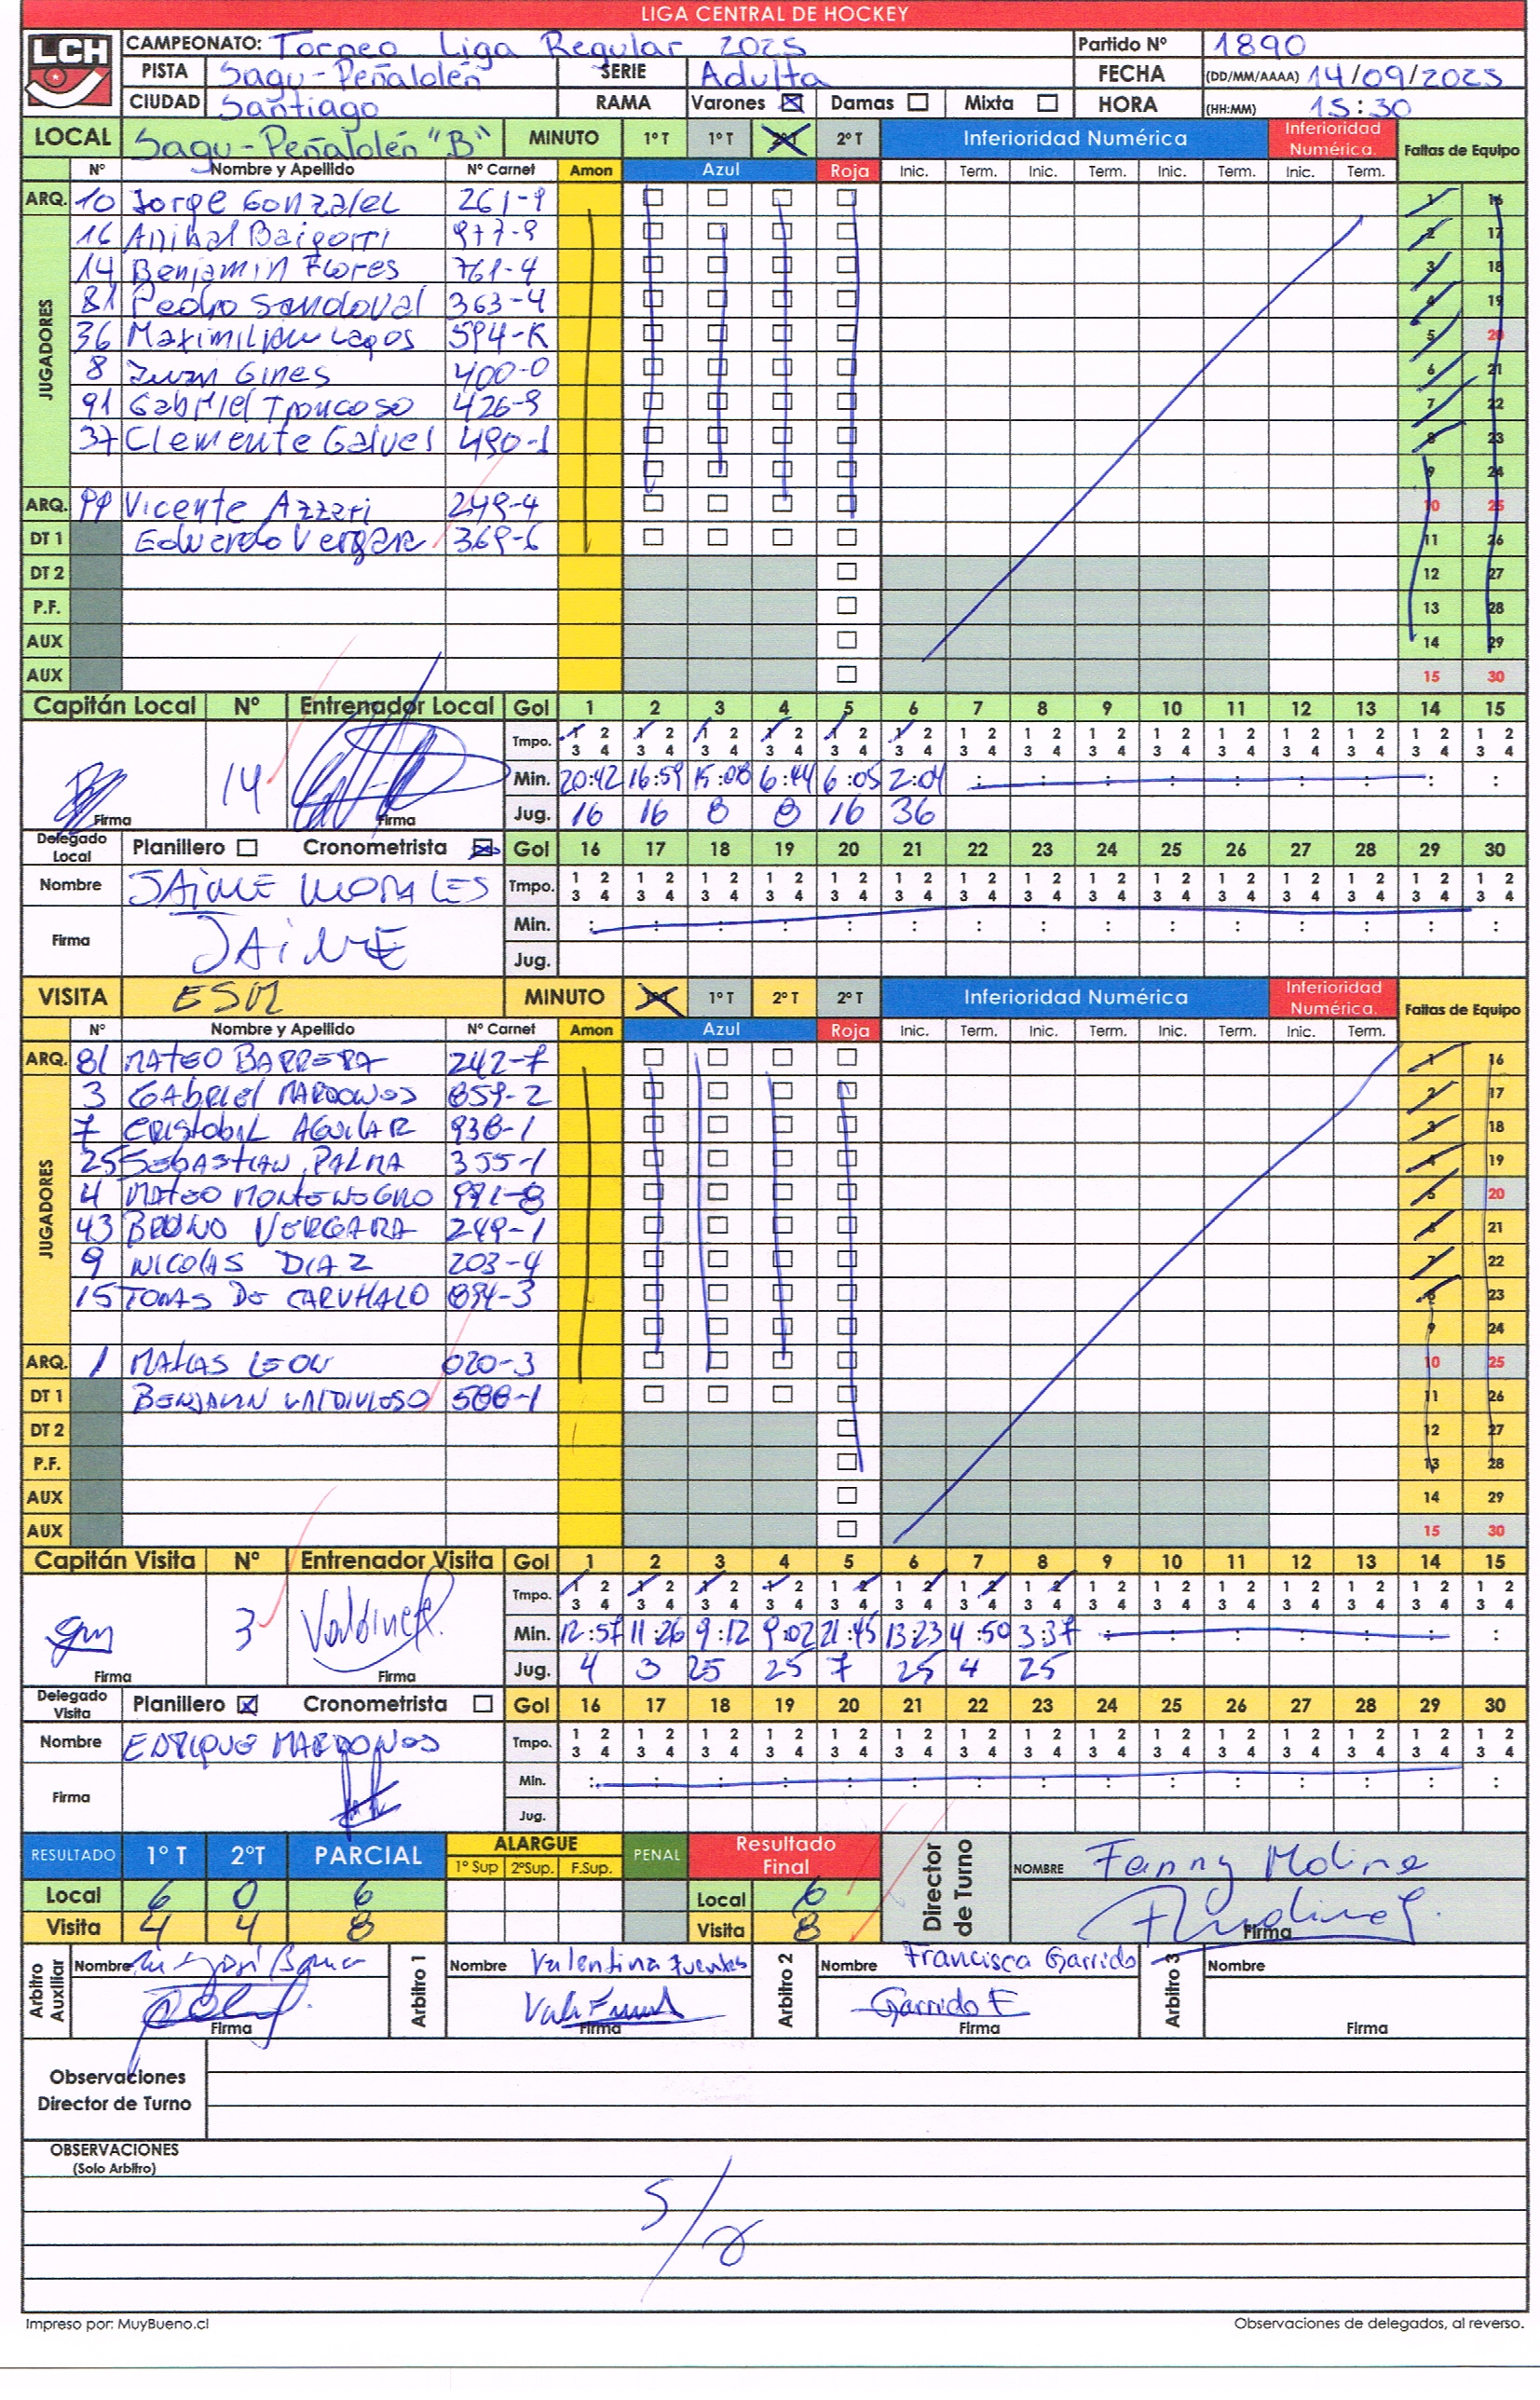 LIGA CENTRAL DE HOCKEY
LCH
CAMPEONATO: Torneo Liga Regular 2025 Partido Nº 1890
PISTA Sagu-Peñalolén SERIE Adulta FECHA (DD/MM/AAAA) 14/09/2025
CIUDAD Santiago RAMA Varones Damas Mixta HORA (HH:MM) 15:30
LOCAL Sagu-Peñalolén "B" MINUTO 1º T 1º T 2º T 2º T Inferioridad Numérica Inferioridad Numérica. Faltas de Equipo
Nº Nombre y Apellido Nº Carnet Amon Azul Roja Inic. Term. Inic. Term. Inic. Term. Inic. Term.
ARQ. 10 Jorge Gonzalez 261-9 1 16
JUGADORES
16 Anibal Baigorri 977-9 2 17
14 Benjamin Flores 761-4 3 18
81 Pedro Sandoval 363-4 4 19
36 Maximiliano Lagos 594-K 5 20
8 Juan Gines 400-0 6 21
91 Gabriel Troncoso 426-9 7 22
37 Clemente Galvez 490-1 8 23
9 24
ARQ. 99 Vicente Azzari 249-4 10 25
DT 1 Eduardo Vergara 369-6 11 26
DT 2 12 27
P.F. 13 28
AUX 14 29
AUX 15 30
Capitán Local Nº Entrenador Local Gol 1 2 3 4 5 6 7 8 9 10 11 12 13 14 15
Tmpo. 1 2 1 2 1 2 1 2 1 2 1 2 1 2 1 2 1 2 1 2 1 2 1 2 1 2 1 2 1 2
3 4 3 4 3 4 3 4 3 4 3 4 3 4 3 4 3 4 3 4 3 4 3 4 3 4 3 4 3 4
14 Min. 20:42 16:59 15:08 6:44 6:05 2:04 : : : : : : : : :
Firma Firma Jug. 16 16 8 8 16 36
Delegado Local Planillero Cronometrista Gol 16 17 18 19 20 21 22 23 24 25 26 27 28 29 30
Nombre JAIME MORALES Tmpo. 1 2 1 2 1 2 1 2 1 2 1 2 1 2 1 2 1 2 1 2 1 2 1 2 1 2 1 2 1 2
3 4 3 4 3 4 3 4 3 4 3 4 3 4 3 4 3 4 3 4 3 4 3 4 3 4 3 4 3 4
Firma JAIME Min. : : : : : : : : : : : : : : :
Jug.
VISITA ESM MINUTO 1º T 1º T 2º T 2º T Inferioridad Numérica Inferioridad Numérica. Faltas de Equipo
Nº Nombre y Apellido Nº Carnet Amon Azul Roja Inic. Term. Inic. Term. Inic. Term. Inic. Term.
ARQ. 81 MATEO BARRERA 242-7 1 16
JUGADORES
3 GABRIEL MARDONES 859-2 2 17
7 CRISTOBAL AGUILAR 938-1 3 18
25 SEBASTIAN PALMA 355-1 4 19
4 MATEO MONTENEGRO 991-8 5 20
43 BRUNO VERGARA 249-1 6 21
9 NICOLAS DIAZ 203-4 7 22
15 TOMAS DE CARVHALO 894-3 8 23
9 24
ARQ. 1 MATIAS LEON 020-3 10 25
DT 1 BENJAMIN VALDIVIESO 588-1 11 26
DT 2 12 27
P.F. 13 28
AUX 14 29
AUX 15 30
Capitán Visita Nº Entrenador Visita Gol 1 2 3 4 5 6 7 8 9 10 11 12 13 14 15
Tmpo. 1 2 1 2 1 2 1 2 1 2 1 2 1 2 1 2 1 2 1 2 1 2 1 2 1 2 1 2 1 2
3 4 3 4 3 4 3 4 3 4 3 4 3 4 3 4 3 4 3 4 3 4 3 4 3 4 3 4 3 4
3 Min. 12:57 11:26 9:12 9:02 21:45 13:23 4:50 3:37 : : : : : : :
Firma Firma Jug. 4 3 25 25 7 25 4 25
Delegado Visita Planillero Cronometrista Gol 16 17 18 19 20 21 22 23 24 25 26 27 28 29 30
Nombre ENRIQUE MARDONES Tmpo. 1 2 1 2 1 2 1 2 1 2 1 2 1 2 1 2 1 2 1 2 1 2 1 2 1 2 1 2 1 2
3 4 3 4 3 4 3 4 3 4 3 4 3 4 3 4 3 4 3 4 3 4 3 4 3 4 3 4 3 4
Firma Min. : : : : : : : : : : : : : : :
Jug.
RESULTADO 1º T 2ºT PARCIAL ALARGUE PENAL Resultado Final Director de Turno NOMBRE Fanny Molina
1º Sup 2ºSup. F.Sup.
Local 6 0 6 Local 6
Visita 4 4 8 Visita 8 Firma
Arbitro Auxiliar Nombre Arbitro 1 Nombre Valentina Fuentes Arbitro 2 Nombre Francisca Garrido Arbitro 3 Nombre
Firma Firma Garrido F Firma Firma
Observaciones
Director de Turno
OBSERVACIONES
(Solo Arbitro)
Impreso por: MuyBueno.cl Observaciones de delegados, al reverso.